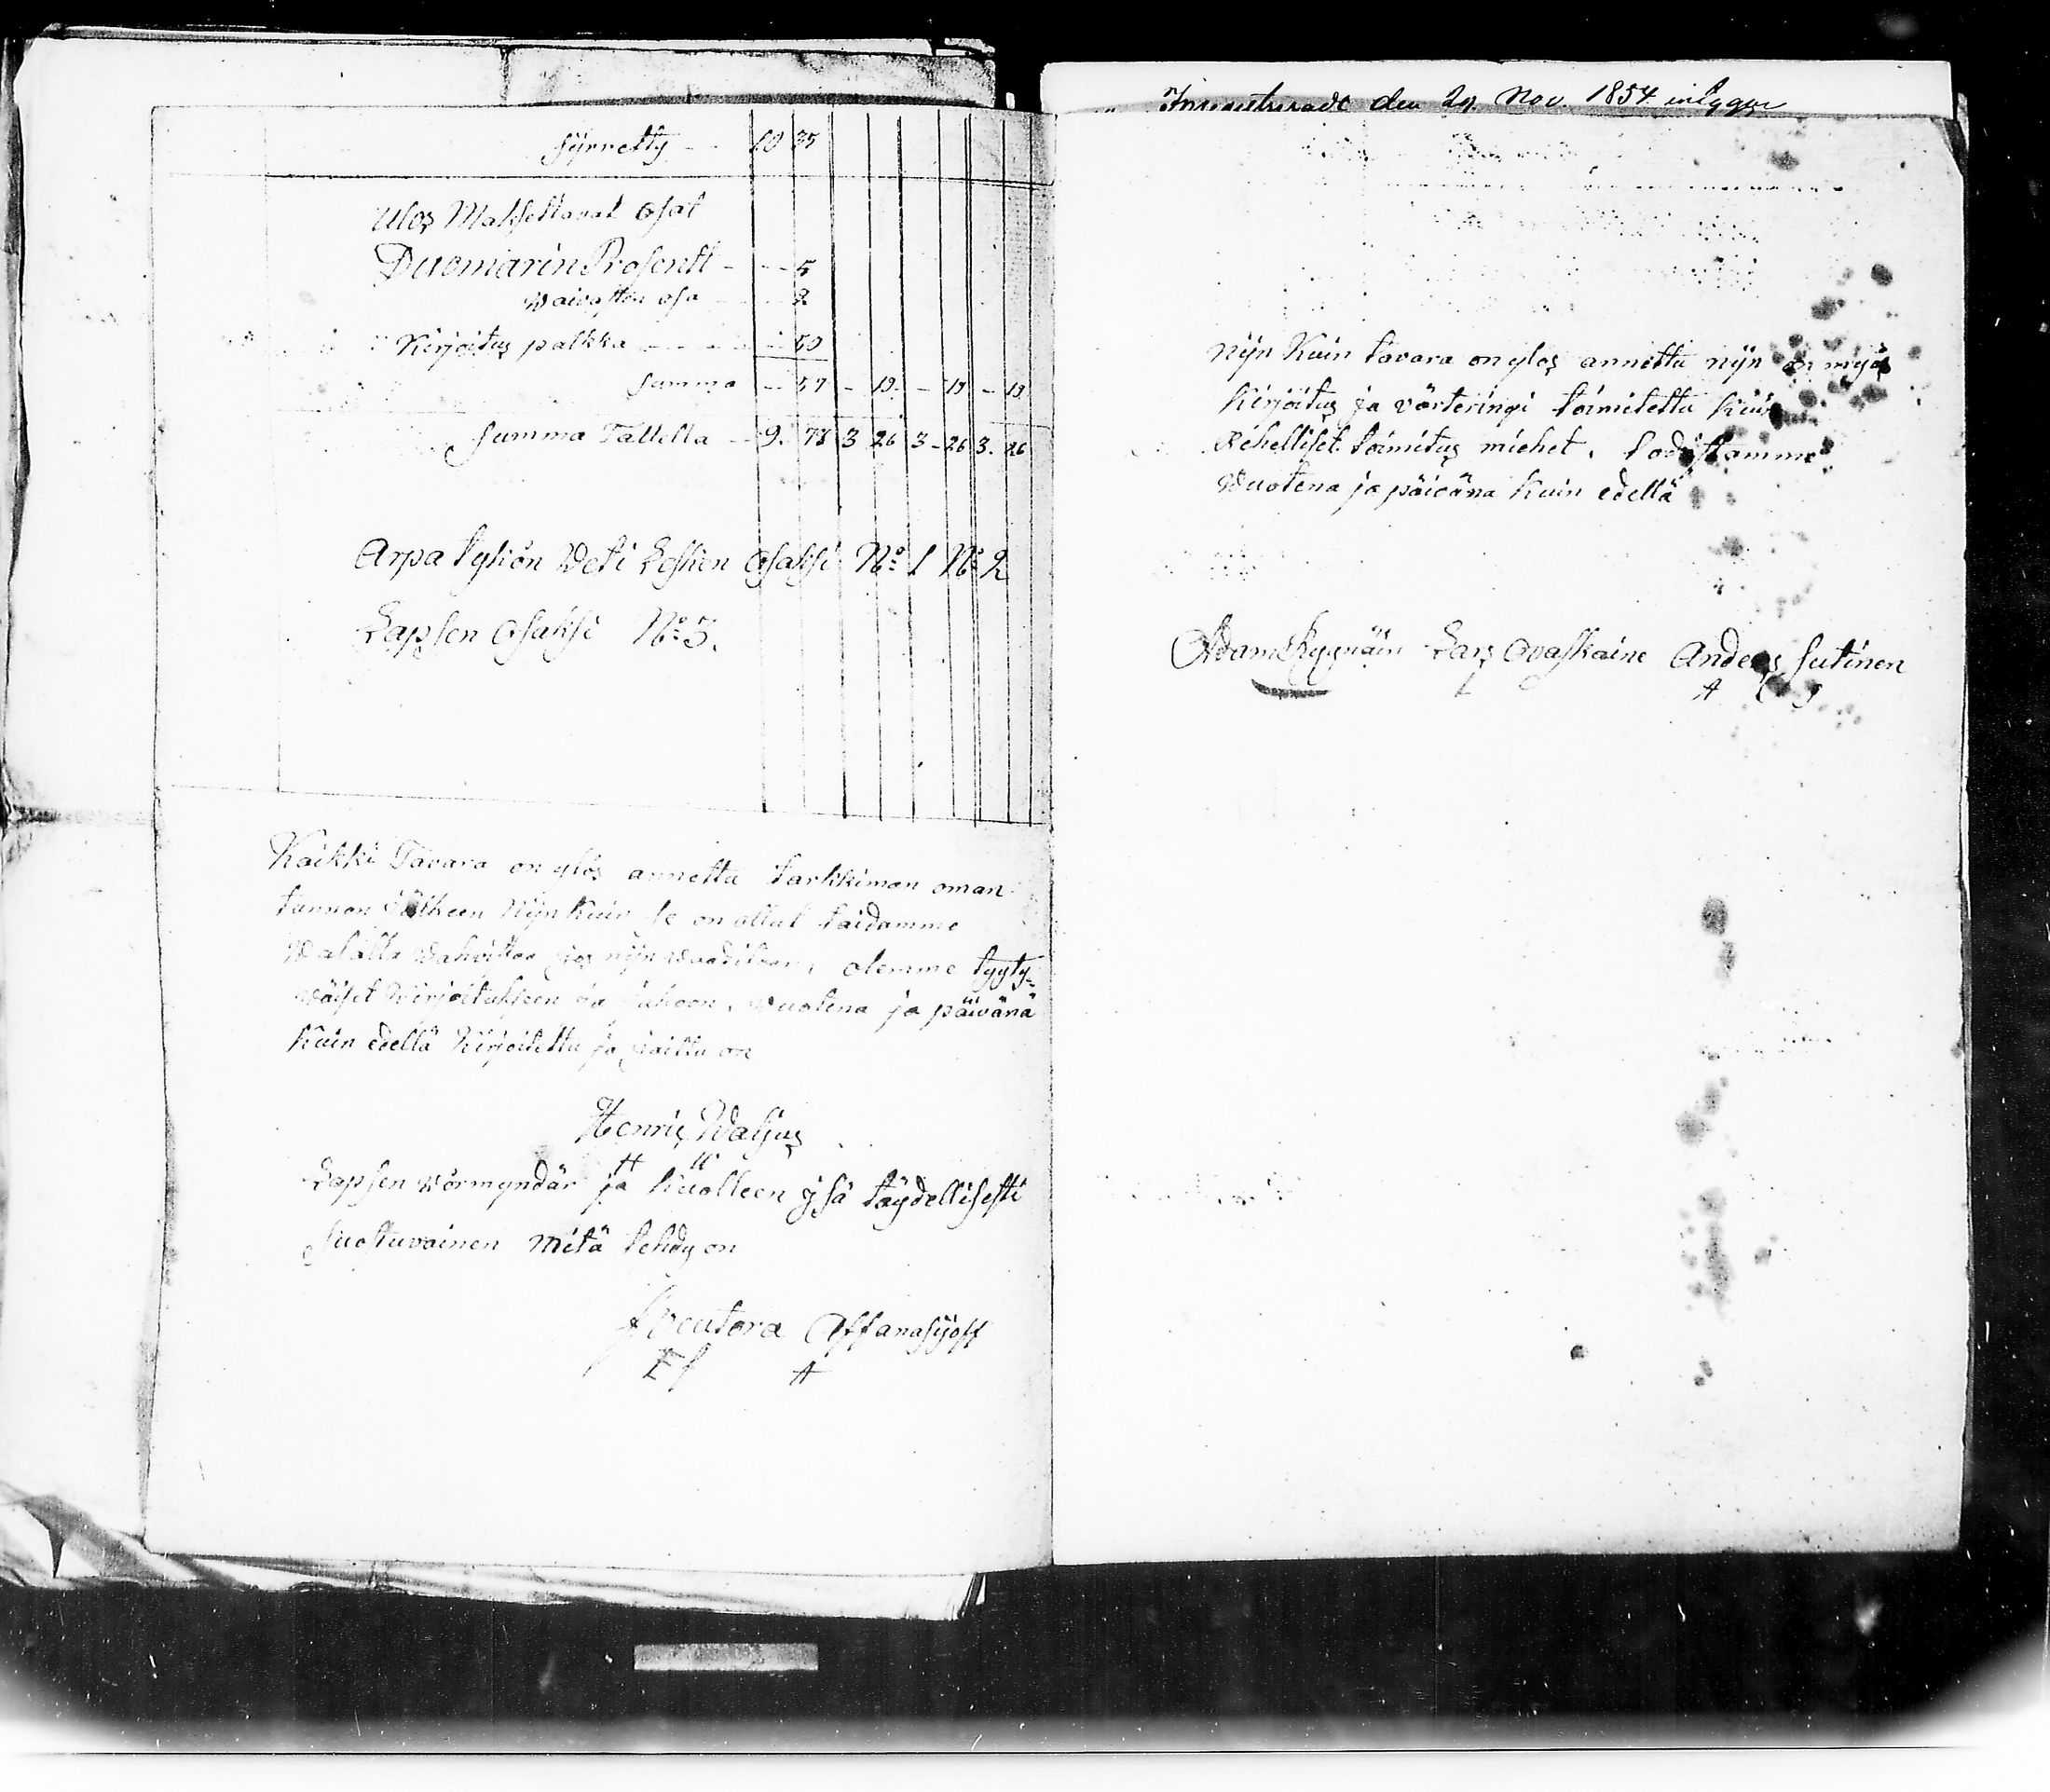 syrretty — 10 35
Ulos Maksettavat osat
Duomarin Prosentt - - - 5
Waivasten osa - - 2
Kirjoitus palkka - - - 50
Summa - - 57 - 19 - 19 - 19
Summa Tallella - 9. 78 3 26 3 - 26 3. 26
Arpa Työhön Weti Lesken Osaksi No 1 No 2
Lapsen Osaksi No 3.
Kaikki Tavara on ylös annettu tarkkiman oman
tunnon jälkeen Nijn kuin se on ollut taidamme
Walalla Wahvistaa jos nijn waaditaan, olemme tyyty-
wäiset Kirjoitukseen ja jakoon, Wuotena ja päivänä
kuin edellä Kirjoitettu ja jaettu on
Henrig Waljus
H W
Lapsen vörmyndär ja kuolleen ysä täydellisesti
suostuvainen mitä tehdy on
Affanasijoff
A
Inregistreradt den 29. Nov. 1854
Nijn Kuin tavara on ylos annettu nijn on myös
Kirjoitus ja vörteringi toimitettu kuin
Rehelliset toimitus miehet, todistamme
Wuotena ja päivänä Kuin edellä
Adam Kygnäin Lars Ovaskaine Anders Sutinen
A S